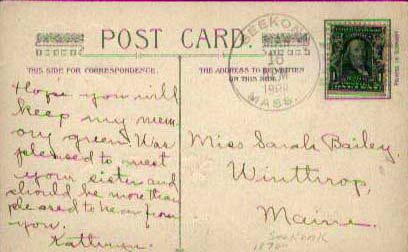 POST CARD.
THIS SIDE FOR CORRESPONDENCE.
THE ADDRESS TO BE WRITTEN
ON THIS SIDE.
SEEKONK
MASS.
PRINTED IN GERMANY
Hope you will
keep my mem
ory green. Was
pleased to meet
your sister and
should be more than
pleased to hear from
you.
Kathryn.
Miss Sarah Bailey.
Winthrop,
Maine.
Seekonk